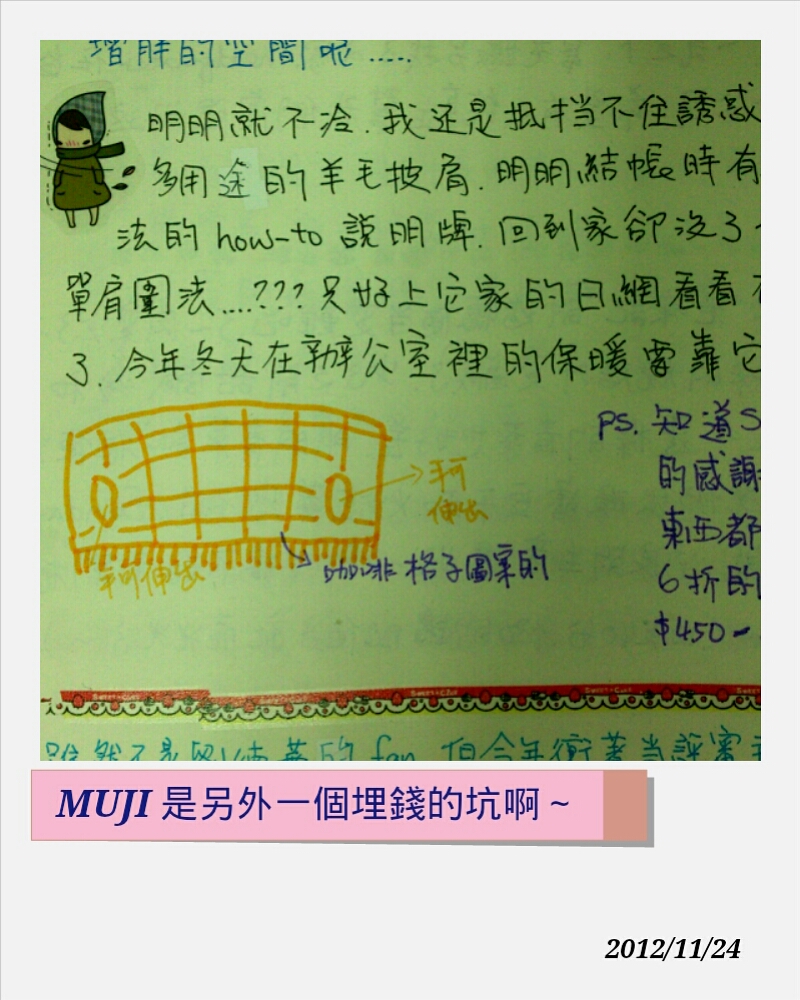 增胖的空間呢.....
明明就不冷.我还是抵挡不住誘惑
多用途的羊毛披肩.明明結帳時有
法的 how-to 說明牌.回到家卻没了
單肩圍法....???只好上它家的日網看看
3.今年冬天在辦公室裡的保暖要靠它
ps.知道S
的感謝
東西都
6折的
$450-
手可
伸出
手可伸出
咖啡格子圖案的
Sweet♥Cafe Sweet♥Cafe Sweet♥Cafe
雖然不是的 fan 但今年衝著當評審
MUJI 是另外一個埋錢的坑啊~
2012/11/24